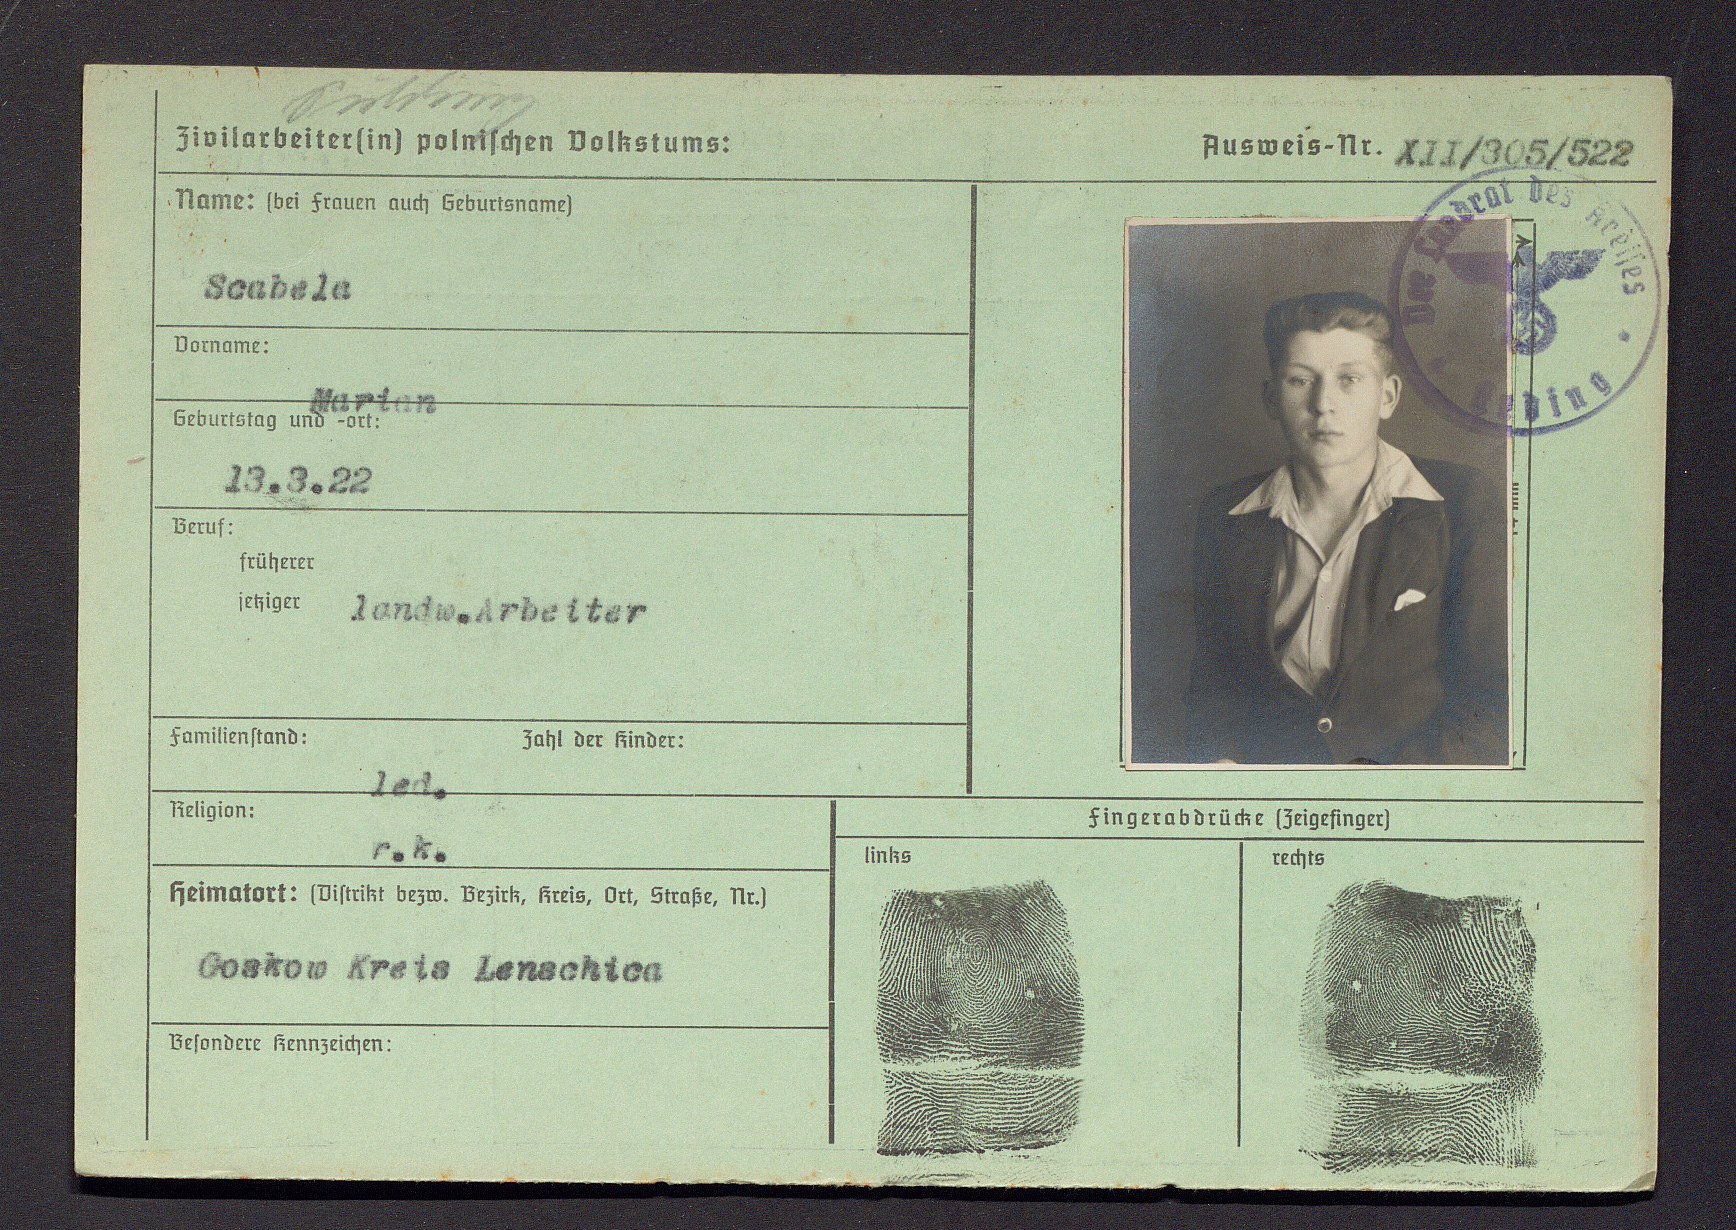 Zivilarbeiter(in) polnischen Volkstums:
Ausweis-Nr. XII/305/522
Name: (bei Frauen auch Geburtsname)
Scabela
Vorname:
Marian
Geburtstag und -ort:
13.3.22
Beruf:
früherer
jetziger landw.Arbeiter
Familienstand: Zahl der Kinder:
led.
Religion:
r.k.
Heimatort: (Distrikt bezw. Bezirk, Kreis, Ort, Straße, Nr.)
Goskow Kreis Lenschica
Besondere Kennzeichen:
Der Landrat des Kreises
Fingerabdrücke (Zeigefinger)
links
rechts